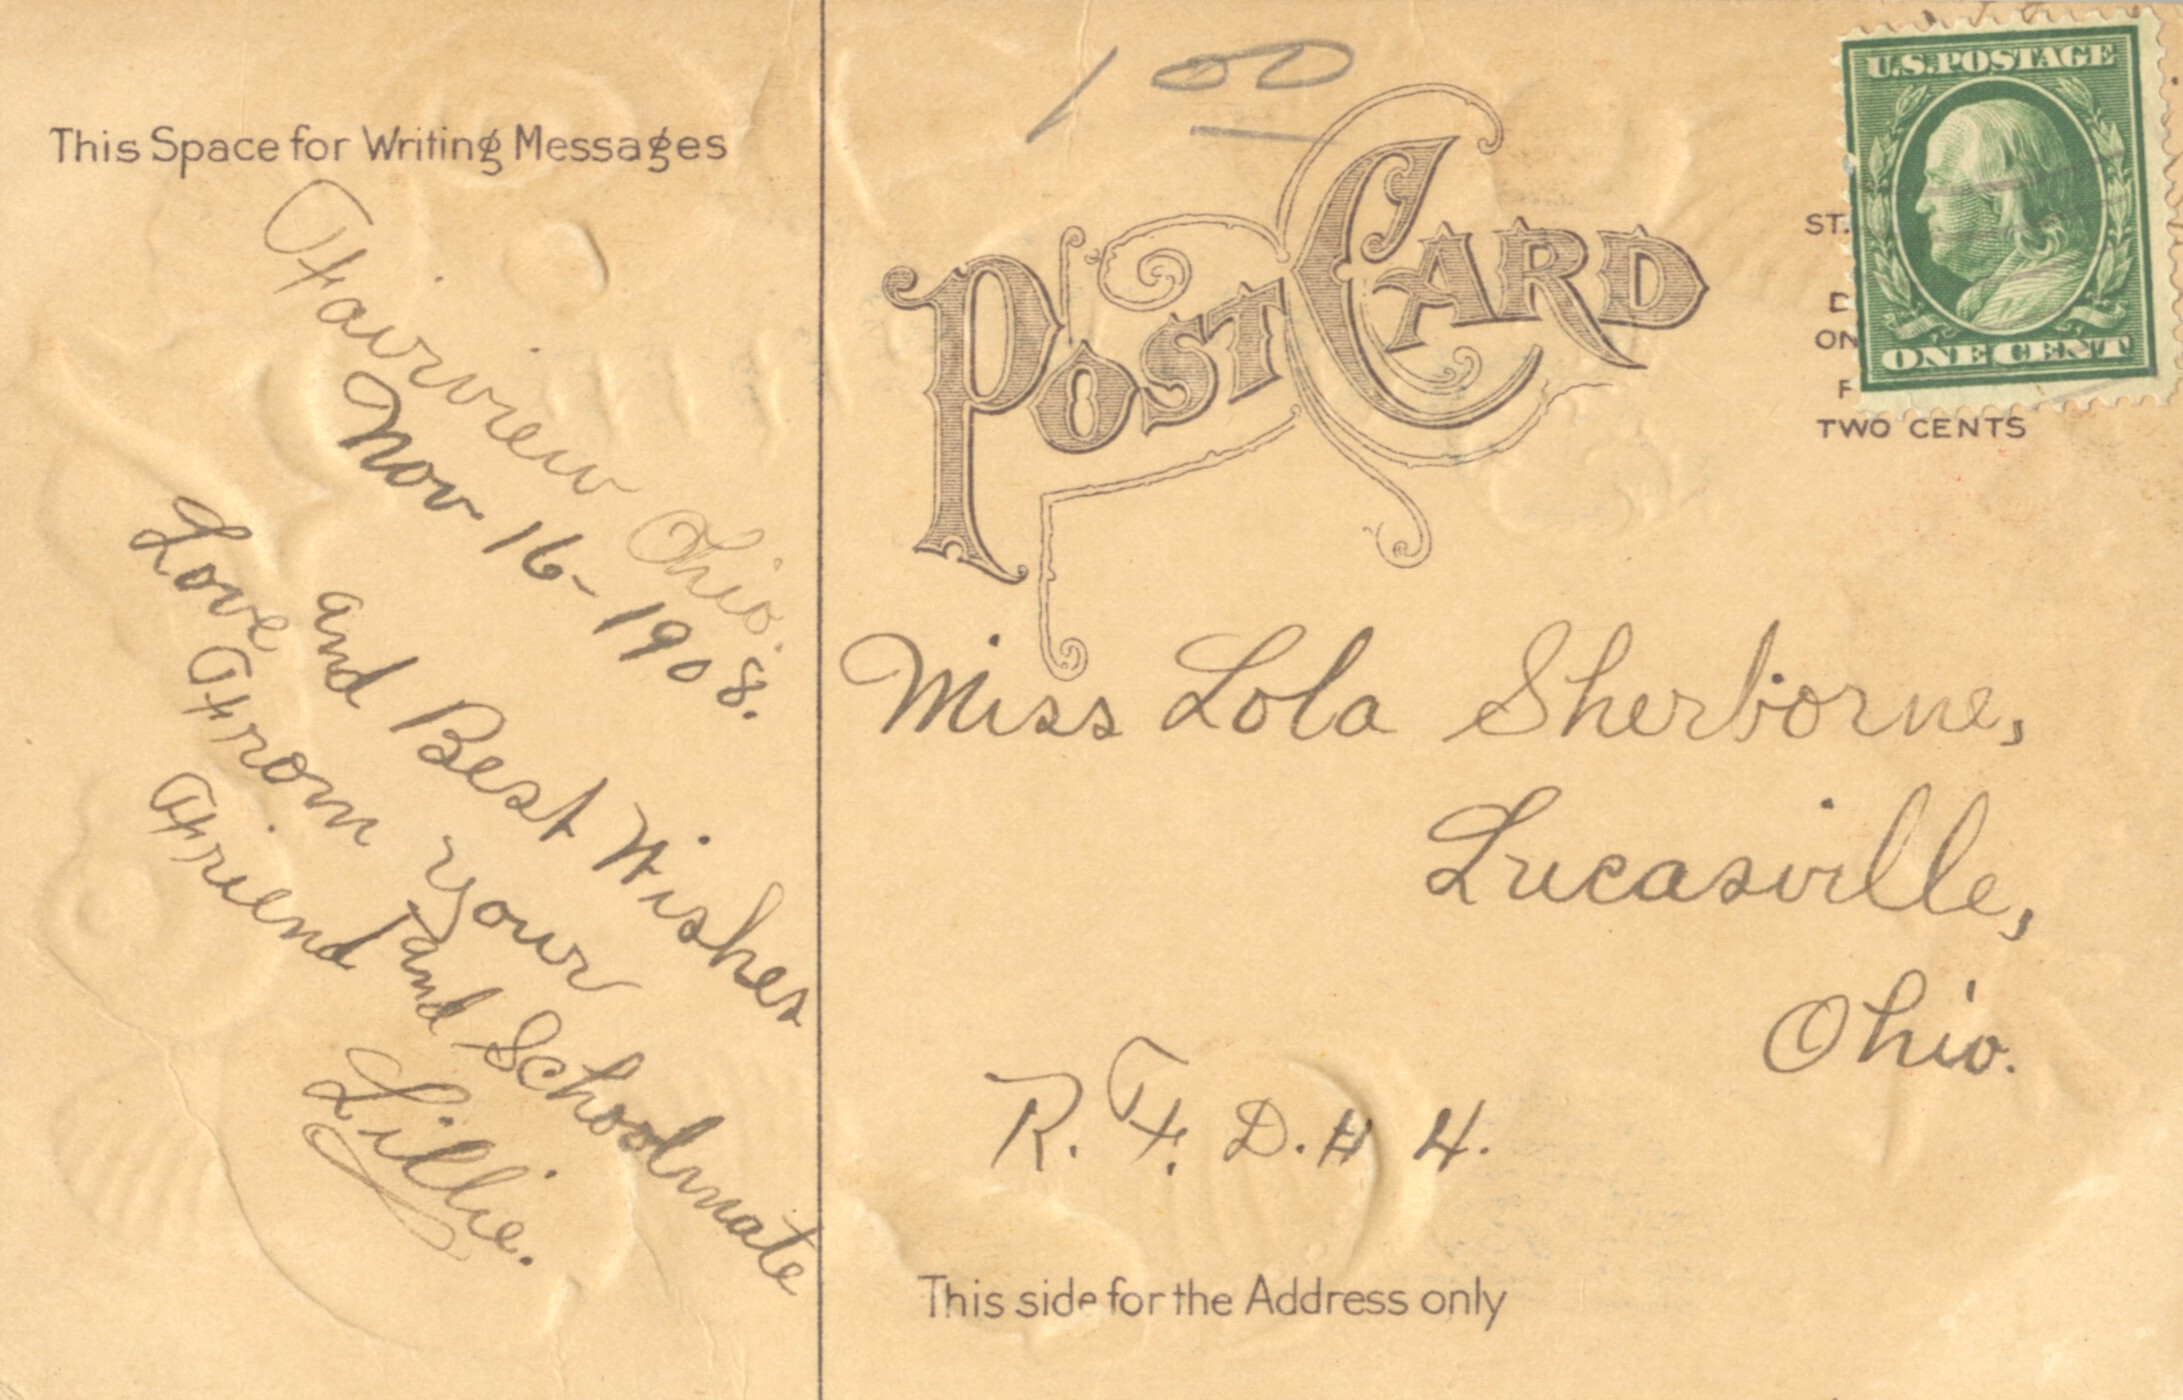 This Space for Writing Messages
Fairview Ohio.
Nov 16-1908.
Love and Best Wishes
From your
Friend and Schoolmate
Lillie.
100
POST CARD
U.S.POSTAGE
ONE CENT
ST.
ON
F
TWO CENTS
Miss Lola Sherborne,
Lucasville,
Ohio.
R. F. D. # 4.
This side for the Address only